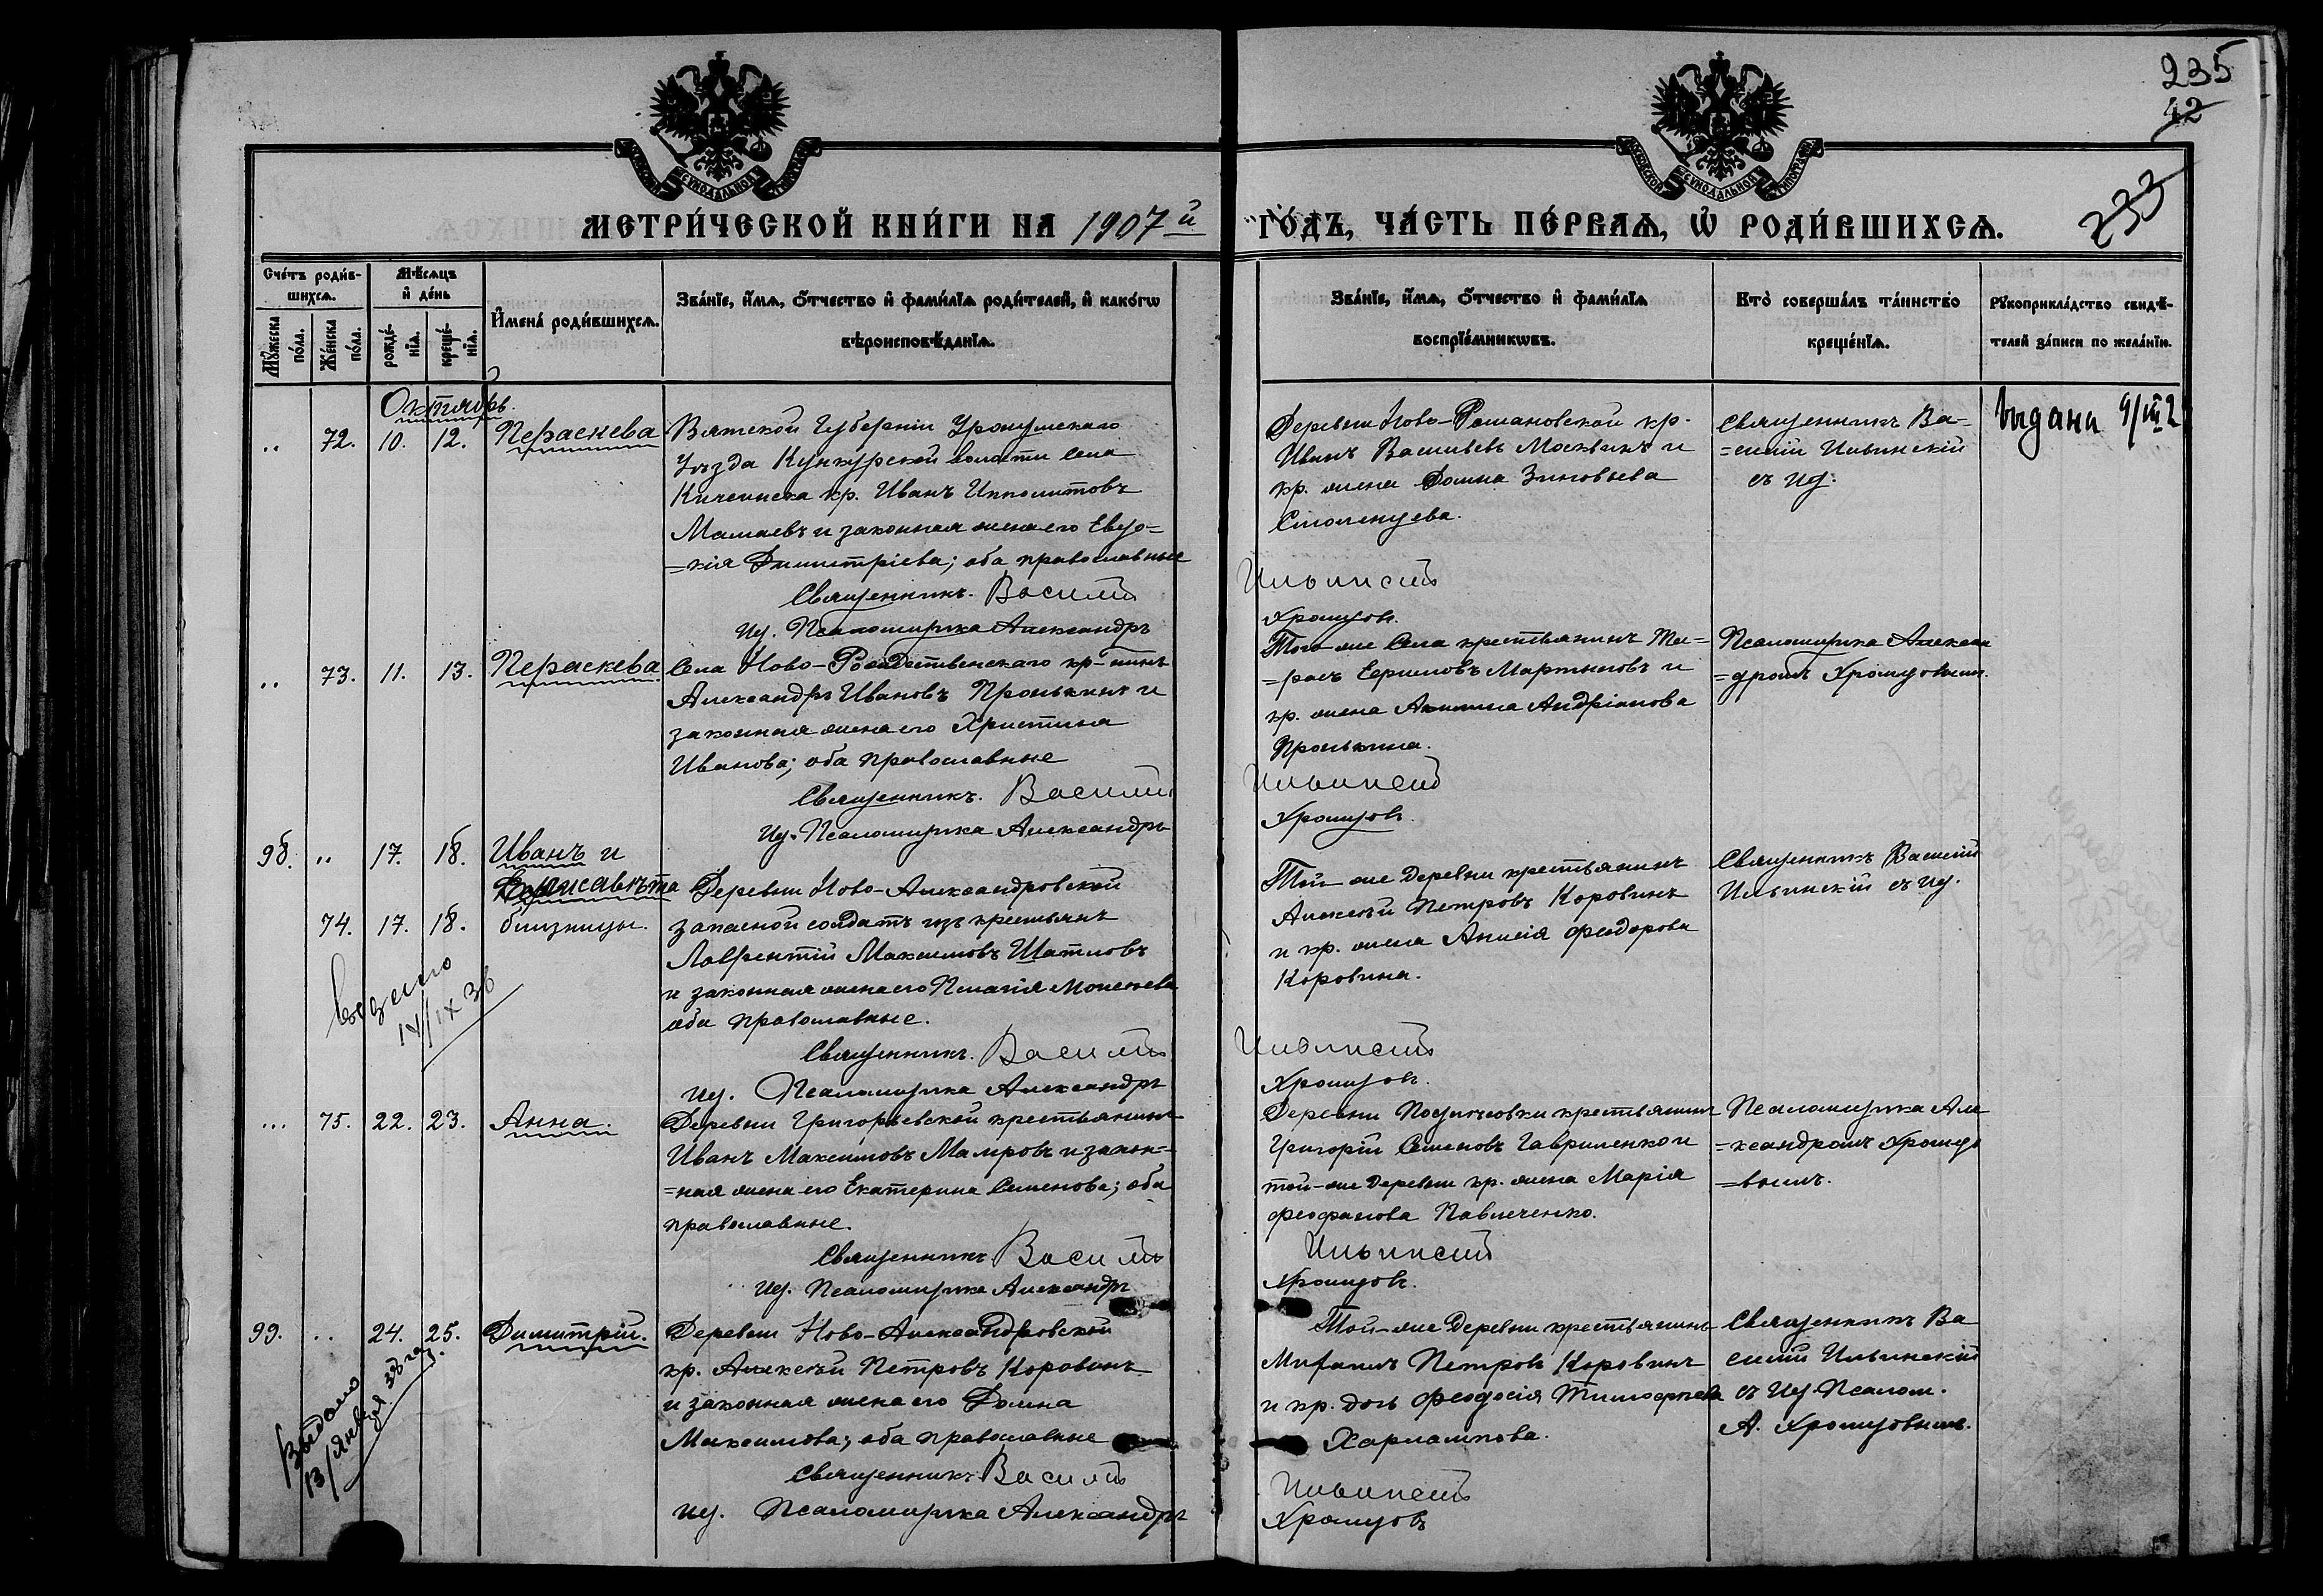 235
42
233
МОСКОВСКОЙ СѴНОДАЛЬНОЙ ТИПОГРАФІИ
МОСКОВСКОЙ СѴНОДАЛЬНОЙ ТИПОГРАФІИ
МЕТРИ́ЧЕСКОЙ КНИ́ГИ НА 1907й ГО́ДЪ, ЧА́СТЬ ПЕ́РВАѦ, Ѡ҆ РОДИ́ВШИХСѦ.
Сче́тъ роди́в-
шихсѧ.
Мꙋ́жеска по́ла.
Же́нска по́ла.
Мѣ́сѧцъ и҆ де́нь
рожде́-нїѧ.
креще́-нїѧ.
И҆мена̀ роди́вшихсѧ.
Зва́нїе, и҆́мѧ, ѻ҆́тчество и҆ фами́лїѧ роди́телей, и҆ како́гѡ
вѣроисповѣ́данїѧ.
Зва́нїе, и҆́мѧ, ѻ҆́тчество и҆ фами́лїѧ
воспрїе́мникѡвъ.
Кто̀ соверша́лъ та́инство
креще́нїѧ.
Рꙋкоприкла́дство свидѣ́-
телей за́писи по жела́нїю.
Октябрь.
.. 72. 10. 12. Пераскева
Вятской Губерніи Уржумскаго
Уѣзда Кунчурской волости села
Кичеинска кр. Иванъ Ипполитовъ
Мамаевъ и законная жена его Евдо=
=кія Димитріева; оба православные
Священникъ. Василій
И.д. Псаломщика Александръ
Деревни Ново-Романовской кр.
Иванъ Васильевъ Москвинъ и
кр. жена Домна Зиновьева
Смоленцева.
Ильинскій
Хромцовъ.
Священникъ Ва=
=силій Ильинскій
съ и.д.
Выдана
.. 73. 11. 13. Пераскева
Села Ново-Рождественскаго кр-нинъ
Александръ Ивановъ Пронькинъ и
законная жена его Христина
Иванова; оба православные
Священникъ. Василій
И.д. Псаломщика Александръ
Того-же села крестьянинъ
=расъ Ефимовъ Мартыновъ и
кр. жена Акилина Андріанова
Пронькина.
Ильинскій
Хромцовъ.
Псаломщика Алексан
=дромъ Хромцовымъ.
98. .. 17. 18. Иванъ и
Елисавѣта
74. 17. 18. близнецы.
Деревни Ново-Александровской
запасной солдатъ изъ крестьянъ
Лаврентій Максимовъ Шатиловъ
и законная жена его Пелагія Моисеева
оба православные.
Священникъ. Василій
и.д. Псаломщика Александръ
Той-же деревни крестьянинъ
Алексѣй Петровъ Коровинъ
и кр. жена Анисія Феодорова
Коровина.
Ильинскій
Хромцовъ.
Священникъ Василій
Ильинскій съ и.д.
IX 36
... 75. 22. 23. Анна.
Деревни Григорьевской крестьянинъ
Иванъ Максимовъ Мамровъ и закон=
=ная жена его Екатерина Семенова; оба
православные.
Священникъ Василій
и.д. Псаломщика Александръ
Деревни крестьянинъ
Григорій Семеновъ Гавриленко и
той-же деревни кр. жена Марія
Феофанова Павлеченко.
Ильинскій
Хромцовъ.
Псаломщика Але
=ксандромъ Хромцо
=вымъ.
99. .. 24. 25. Димитрій.
Деревни Ново-Александровской
кр. Алексѣй Петровъ Коровинъ
и законная жена его Домна
Максимова; оба православные
Священникъ Василій
и.д. Псаломщика Александръ
Той-же деревни крестьянинъ
Михаилъ Петровъ Коровинъ
и кр. дочь Феодосія Тимофеева
Харлампова.
Ильинскій
Хромцовъ
Священникъ Ва
силій Ильинскій
съ и.д. Псалом.
А. Хромцовымъ.
Выдано
13/января 38 года